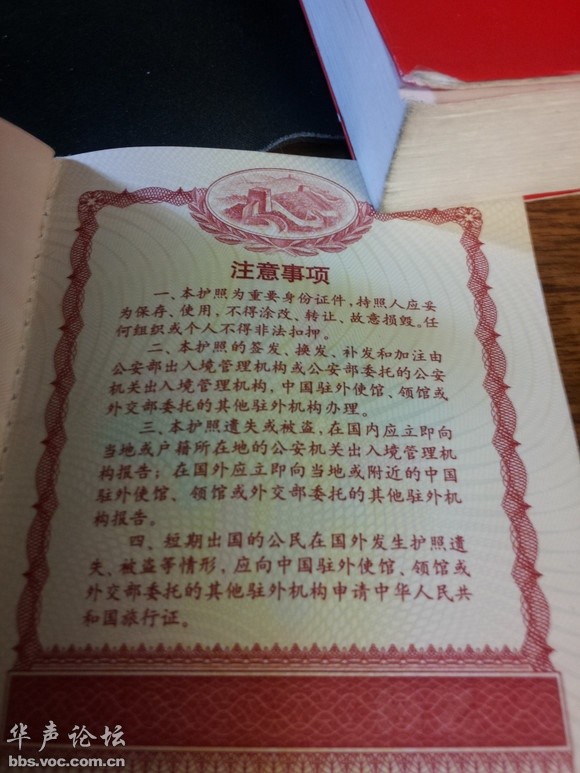 注意事项
一、本护照为重要身份证件，持照人应妥
为保存、使用，不得涂改、转让、故意损毁。任
何组织或个人不得非法扣押。
二、本护照的签发、换发、补发和加注由
公安部出入境管理机构或公安部委托的公安
机关出入境管理机构，中国驻外使馆、领馆或
外交部委托的其他驻外机构办理。
三、本护照遗失或被盗，在国内应立即向
当地或户籍所在地的公安机关出入境管理机
构报告；在国外应立即向当地或附近的中国
驻外使馆、领馆或外交部委托的其他驻外机
构报告。
四、短期出国的公民在国外发生护照遗
失、被盗等情形，应向中国驻外使馆、领馆或
外交部委托的其他驻外机构申请中华人民共
和国旅行证。
华声论坛
bbs.voc.com.cn